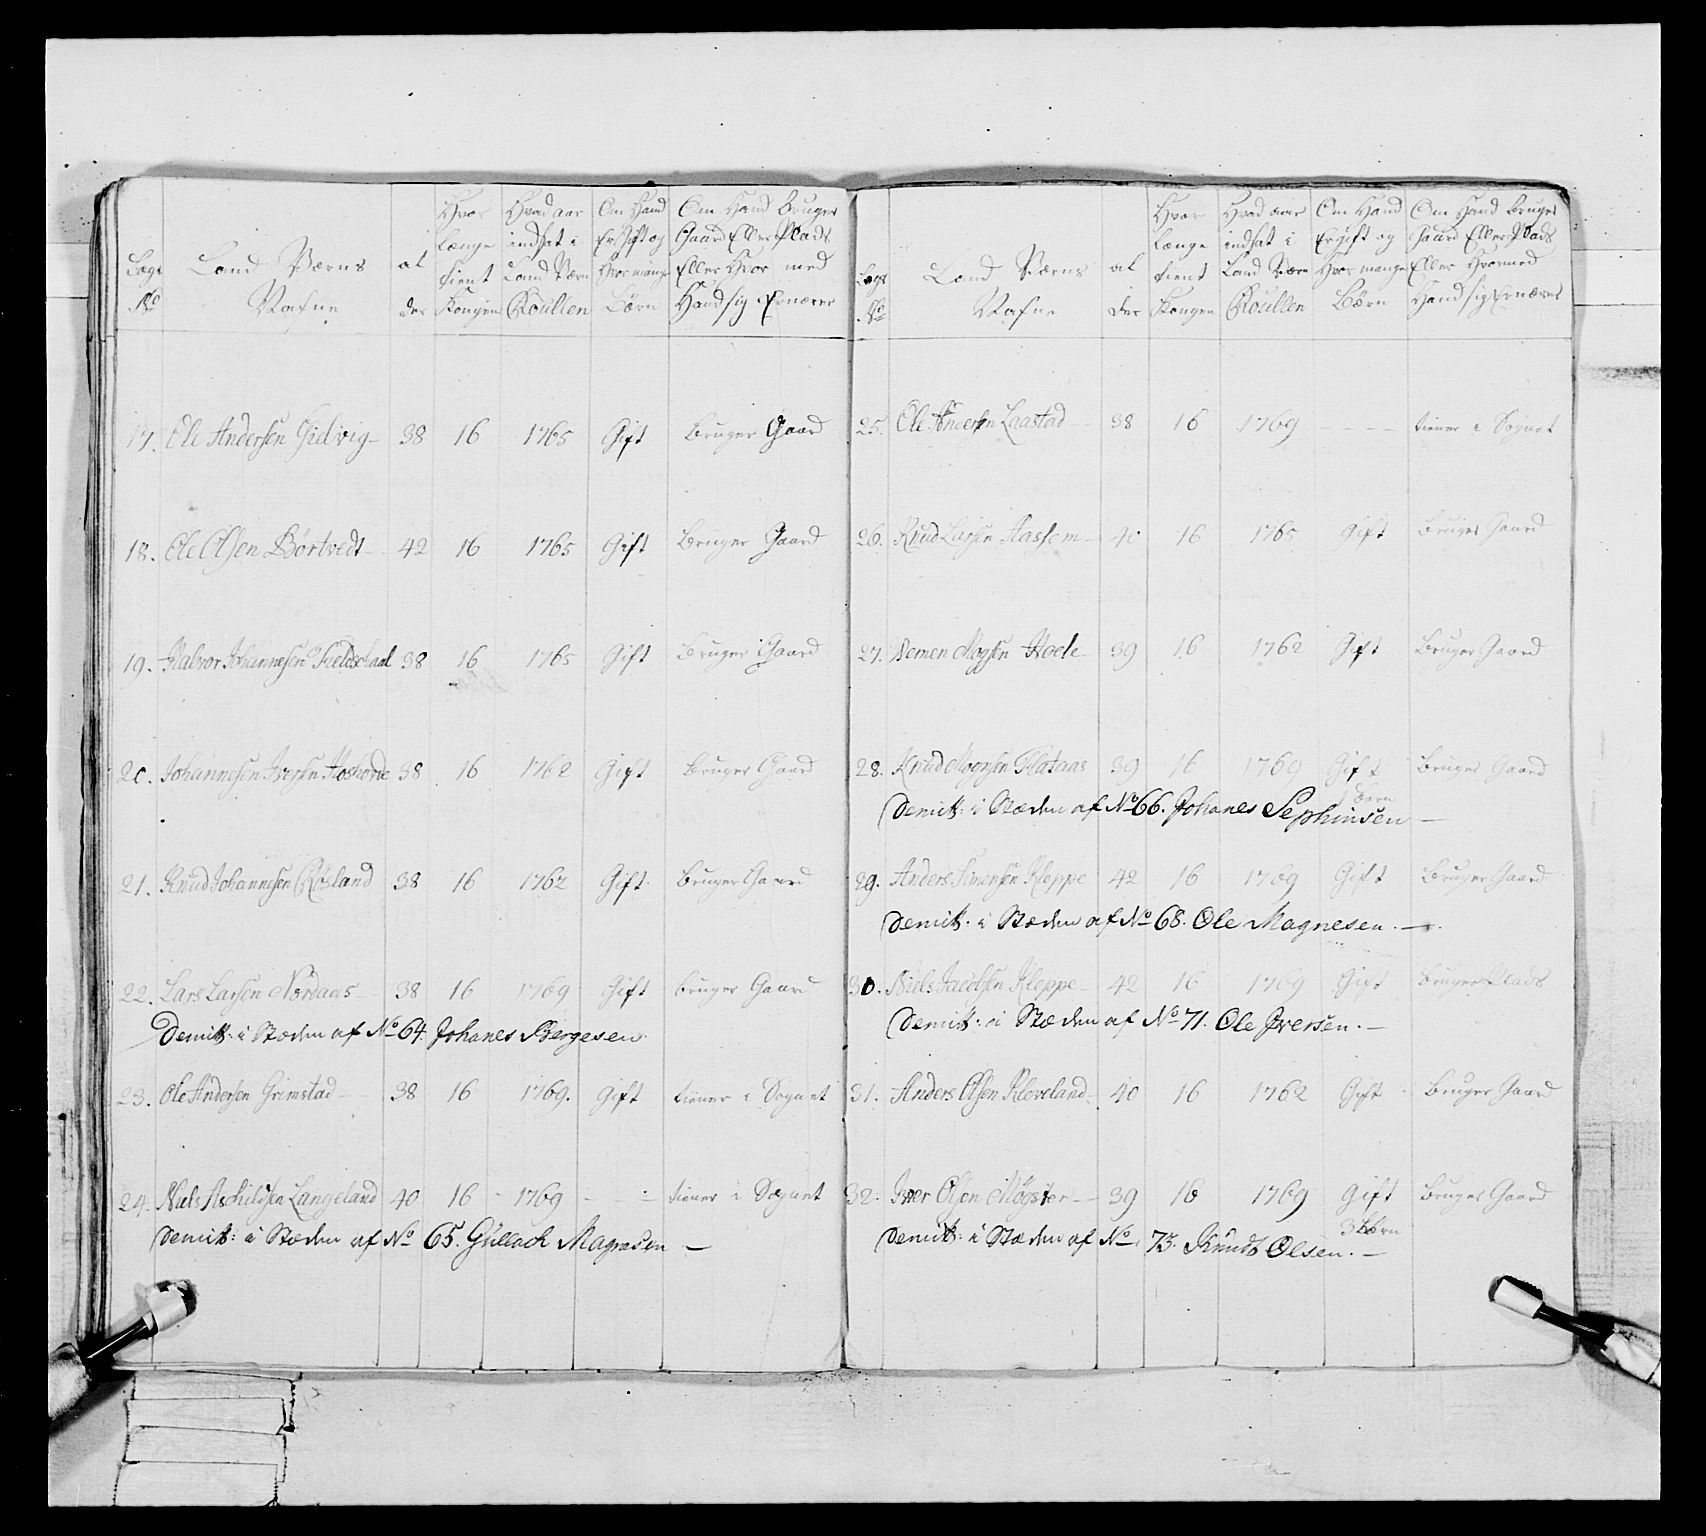 Lægs No | Land Værns Nafne | alder | Hvor Længe tient Kongen | Hvad aar indsat i Land Værn Roullen | Om Hand Er Gift og Hvor mange Børn | Om Hand Bruger Gaard Eller Plads Eller Hvor med Hand sig Ernærer
17. Ole Andersen Gielvig 38 16 1765 Gift Bruger Gaard
18. Ole Olsen Børtvedt 42 16 1765 Gift Bruger Gaard
19. Halvor Johannesen 38 16 1765 Gift Bruger Gaard
20. Johannesen Iversen 38 16 1762 Gift Bruger Gaard
21. Knud Johannesen Røsland 38 16 1762 Gift Bruger Gaard
22. Lars Larsen Nordaas 38 16 1769 Gift bruger Gaard
Demitt: i Stæden af No 64. Johanes Børgesen
23. Ole Andersen Grimstad 38 16 1769. Gift tiener i Sognet
24. Niels Aschildsen Langeland 40 16 1769 - - tiener i Sognet
Demitt: i Stæden af No 65. Gullach Magnesen —
Lægs No | Land Værns Nafne | alder | Hvor Længe tient Kongen | Hvad aar indsat i Land Værn Roullen | Om Hand Er gift og Hvor mange Børn | Om Hand bruger Gaard Eller Plads Eller Hvormed Hand sig Ernærer
25. Ole Andersen Laastad 38 16 1769 - - - tiener i Sognet
26. Knud Larsen 40 16 1765 Gift Bruger Gaard
27. Mogsen 39 16 1762 Gift Bruger Gaard
28. Knud Mogsen 39 16 1769 Gift Bruger Gaard
Børn
Demitt: i Stæden af No 66. Johanes Sephinsen —
29. Anders Simensen Kleppe 42 16 1769 Gift Bruger Gaard
Demitt: i Stæden af No 68. Ole Magnesen. —
30. Niels Jacobsen Kleppe 42 16 1769 Gift bruger Plads
Demitt: i Stæden af No 71. Ole Iversen. —
31. Anders Olsen Kleveland 40 16 1762 Gift Bruger Gaard
32. Iver Olsen Møgster 39 16 1769 Gift Bruger Gaard
3 Børn
Demitt: i Stæden af No 73. Knudt Olsen. —